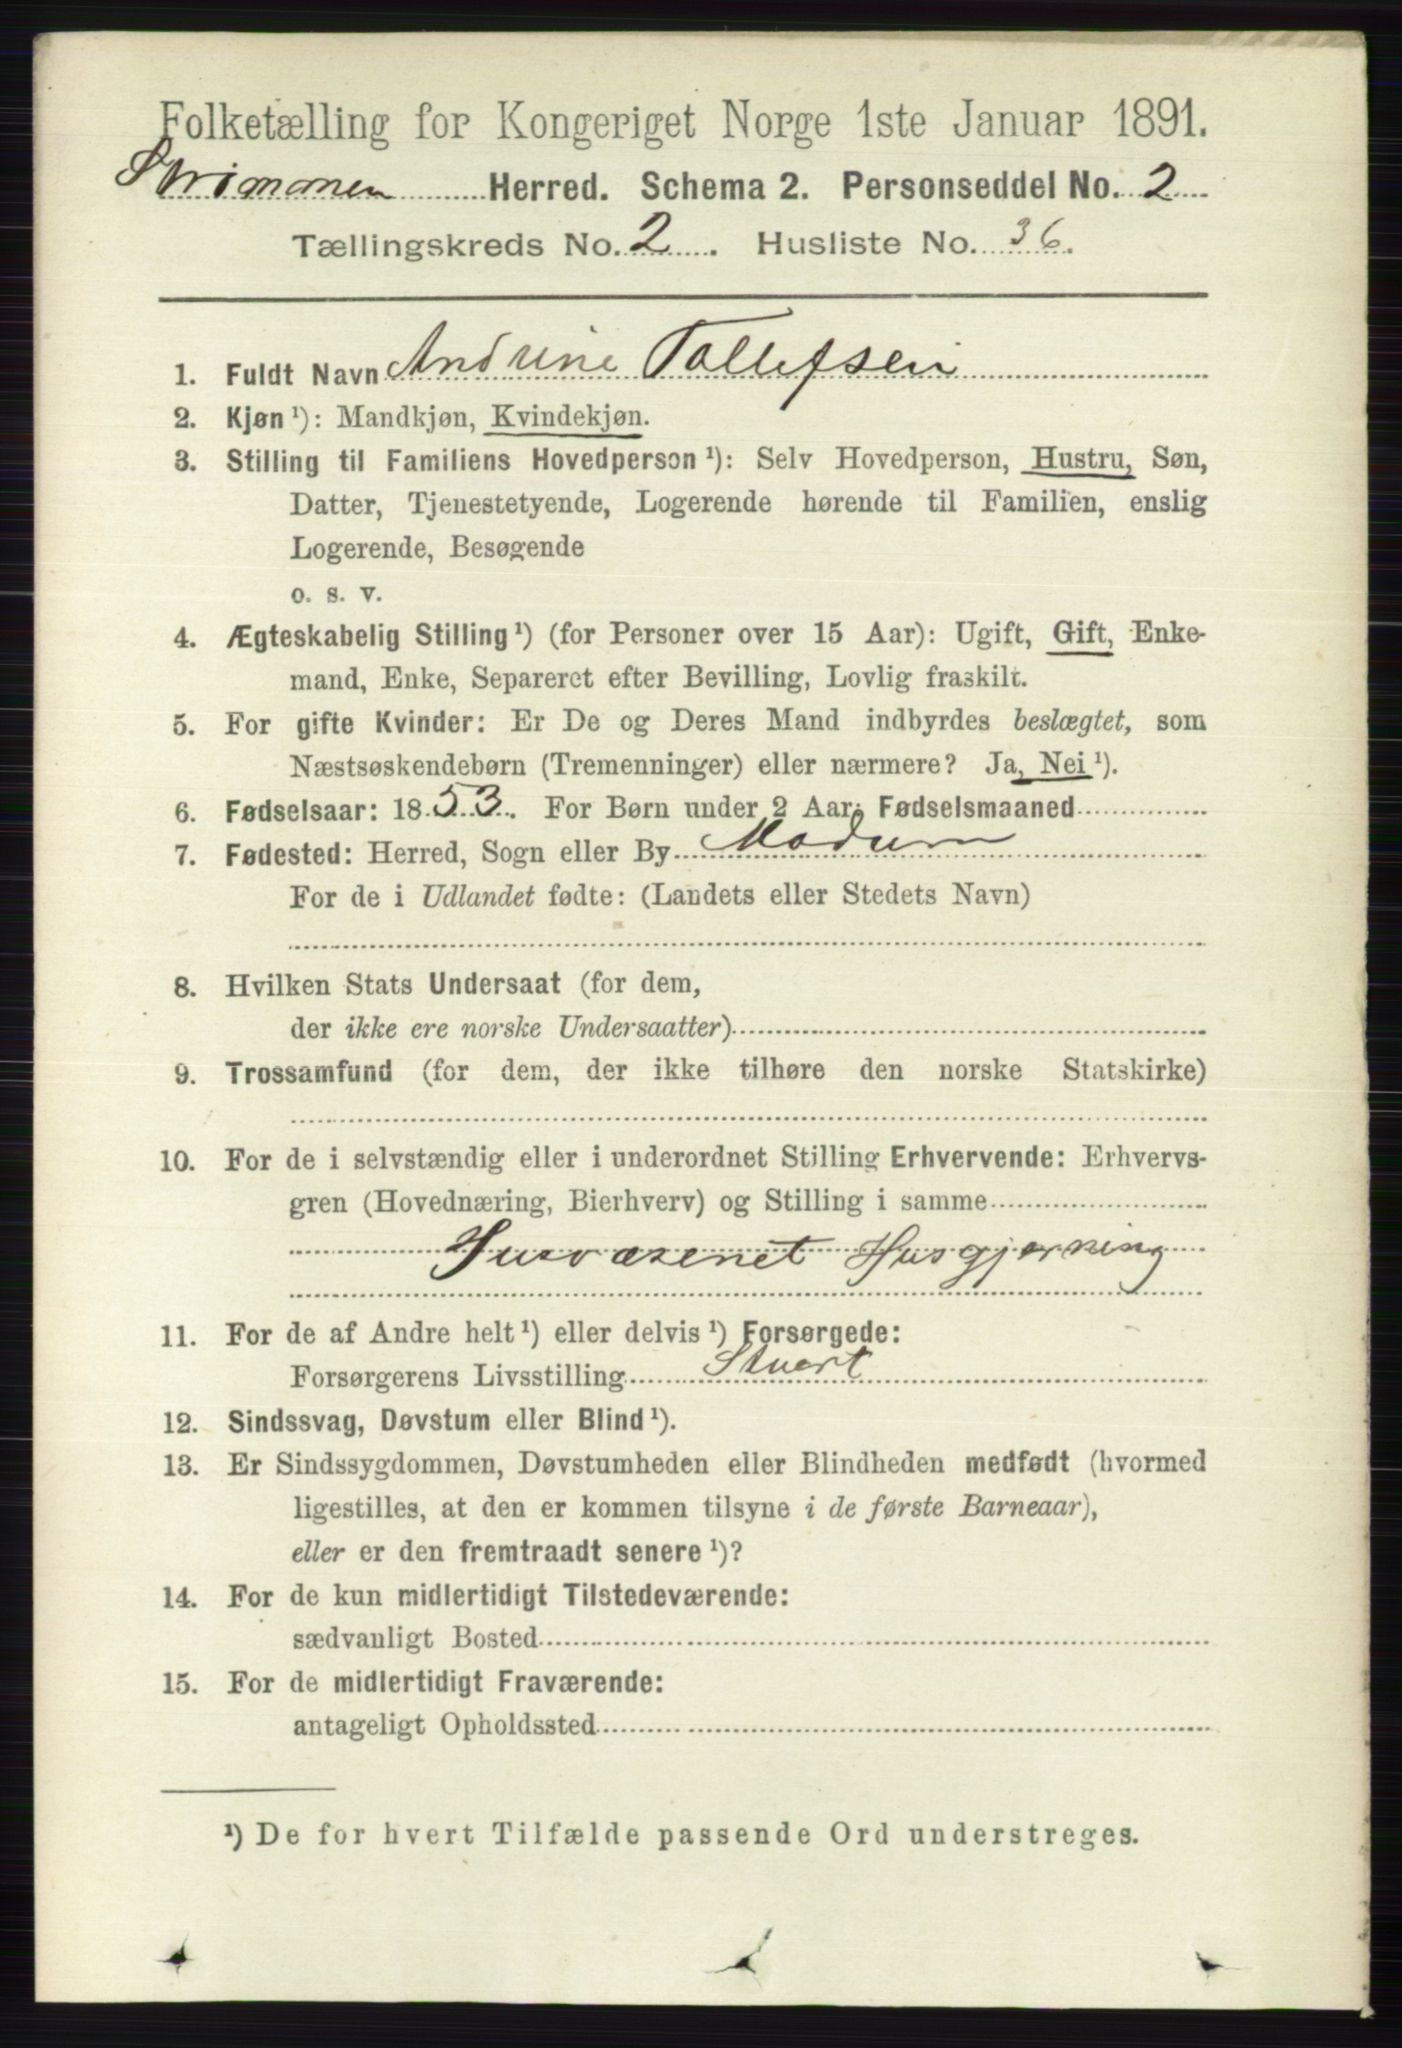 Folketælling for Kongeriget Norge 1ste Januar 1891.
Strømmen Herred. Schema 2. Personseddel No. 2
Tællingskreds No. 2. Husliste No. 36.
1. Fuldt Navn Andrine Tollefsen
2. Kjøn ¹): Mandkjøn, Kvindekjøn.
3. Stilling til Familiens Hovedperson ¹): Selv Hovedperson, Hustru, Søn,
Datter, Tjenestetyende, Logerende hørende til Familien, enslig
Logerende, Besøgende
o. s. v.
4. Ægteskabelig Stilling ¹) (for Personer over 15 Aar): Ugift, Gift, Enke-
mand, Enke, Separeret efter Bevilling, Lovlig fraskilt.
5. For gifte Kvinder: Er De og Deres Mand indbyrdes beslægtet, som
Næstsøskendebørn (Tremenninger) eller nærmere? Ja, Nei ¹).
6. Fødselsaar: 1853. For Børn under 2 Aar: Fødselsmaaned
7. Fødested: Herred, Sogn eller By Modum
For de i Udlandet fødte: (Landets eller Stedets Navn)
8. Hvilken Stats Undersaat (for dem,
der ikke ere norske Undersaatter)
9. Trossamfund (for dem, der ikke tilhøre den norske Statskirke)
10. For de i selvstændig eller i underordnet Stilling Erhvervende: Erhvervs-
gren (Hovednæring, Bierhverv) og Stilling i samme
Husvæsenet Husgjerning
11. For de af Andre helt ¹) eller delvis ¹) Forsørgede:
Forsørgerens Livsstilling Stuert
12. Sindssvag, Døvstum eller Blind ¹).
13. Er Sindssygdommen, Døvstumheden eller Blindheden medfødt (hvormed
ligestilles, at den er kommen tilsyne i de første Barneaar),
eller er den fremtraadt senere ¹)?
14. For de kun midlertidigt Tilstedeværende:
sædvanligt Bosted
15. For de midlertidigt Fraværende:
antageligt Opholdssted
¹) De for hvert Tilfælde passende Ord understreges.